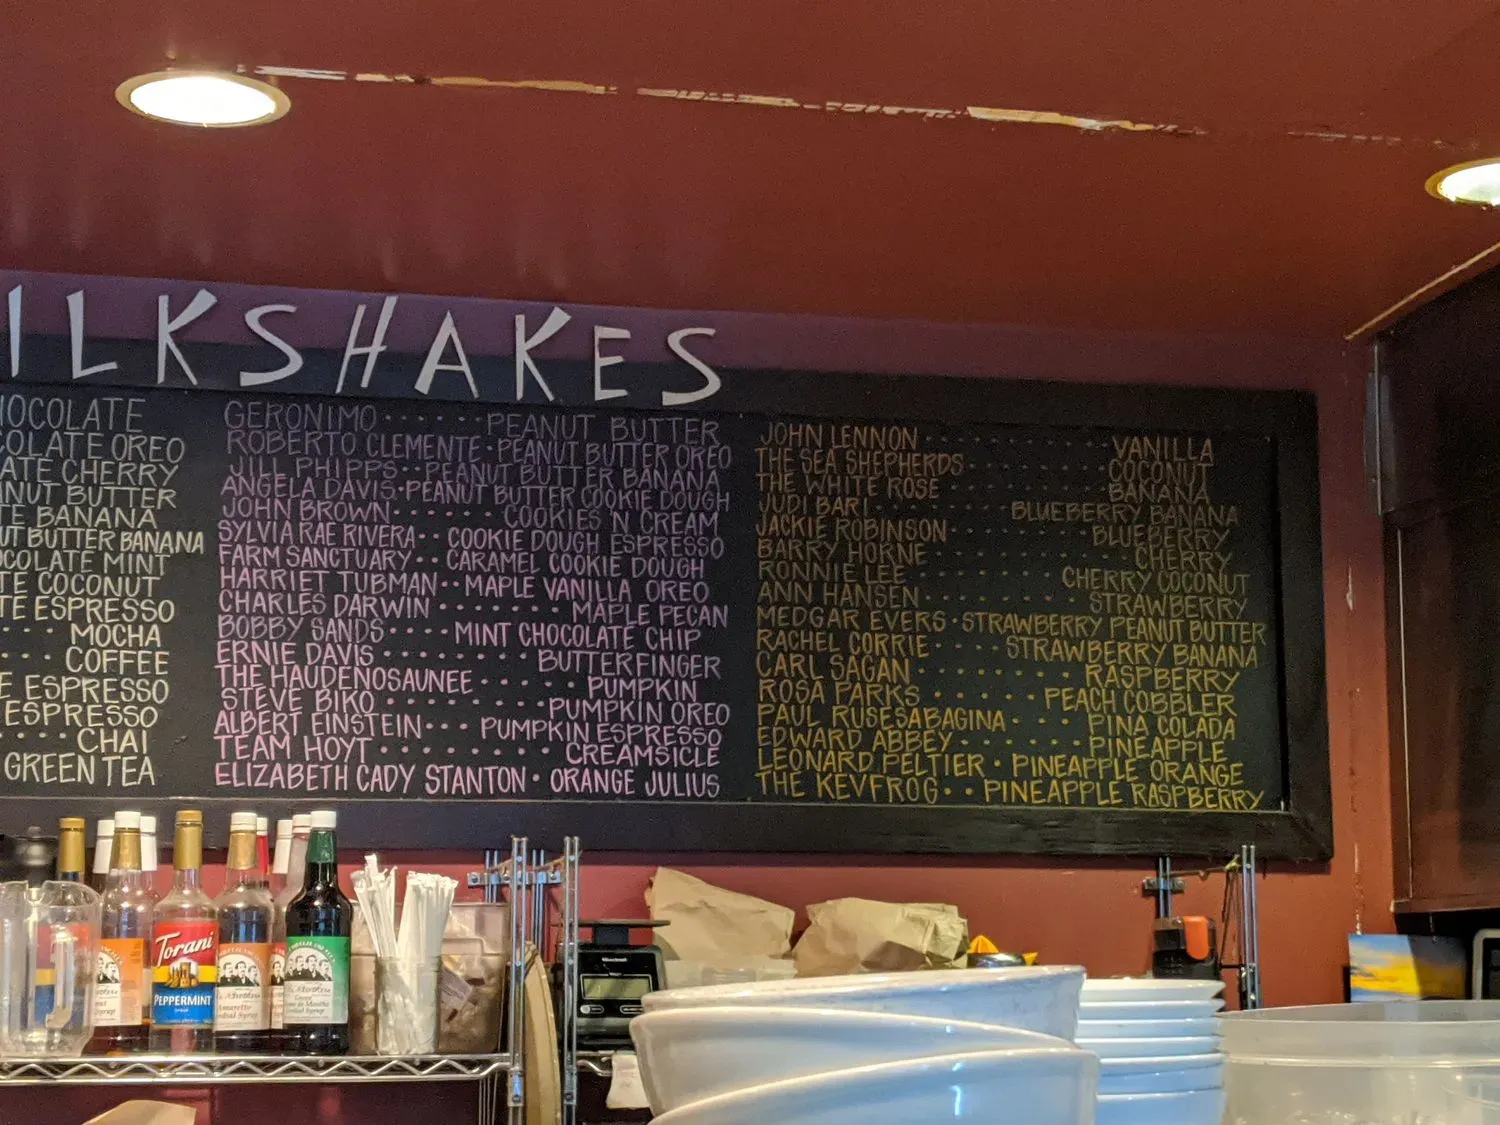 ILKSHAKES
HOCOLATE
COLATE OREO
ATE CHERRY
NUT BUTTER
TE BANANA
UT BUTTER BANANA
OCOLATE MINT
TE COCONUT
TE ESPRESSO
···· MOCHA
···· COFFEE
E ESPRESSO
ESPRESSO
···· CHAI
GREEN TEA
GERONIMO ······ PEANUT BUTTER
ROBERTO CLEMENTE · PEANUT BUTTER OREO
JILL PHIPPS ·· PEANUT BUTTER BANANA
ANGELA DAVIS · PEANUT BUTTER COOKIE DOUGH
JOHN BROWN ······ COOKIES N CREAM
SYLVIA RAE RIVERA ·· COOKIE DOUGH ESPRESSO
FARM SANCTUARY ·· CARAMEL COOKIE DOUGH
HARRIET TUBMAN ·· MAPLE VANILLA OREO
CHARLES DARWIN ······· MAPLE PECAN
BOBBY SANDS ···· MINT CHOCOLATE CHIP
ERNIE DAVIS ········ BUTTERFINGER
THE HAUDENOSAUNEE ····· PUMPKIN
STEVE BIKO ········ PUMPKIN OREO
ALBERT EINSTEIN ··· PUMPKIN ESPRESSO
TEAM HOYT ········ CREAMSICLE
ELIZABETH CADY STANTON · ORANGE JULIUS
JOHN LENNON ·········· VANILLA
THE SEA SHEPHERDS ········ COCONUT
THE WHITE ROSE ········· BANANA
JUDI BARI ········ BLUEBERRY BANANA
JACKIE ROBINSON ········ BLUEBERRY
BARRY HORNE ·········· CHERRY
RONNIE LEE ········ CHERRY COCONUT
ANN HANSEN ········· STRAWBERRY
MEDGAR EVERS · STRAWBERRY PEANUT BUTTER
RACHEL CORRIE ···· STRAWBERRY BANANA
CARL SAGAN ········· RASPBERRY
ROSA PARKS ······ PEACH COBBLER
PAUL RUSESABAGINA ···· PINA COLADA
EDWARD ABBEY ······· PINEAPPLE
LEONARD PELTIER · PINEAPPLE ORANGE
THE KEVFROG ·· PINEAPPLE RASPBERRY
Torani
PEPPERMINT
Amaretto